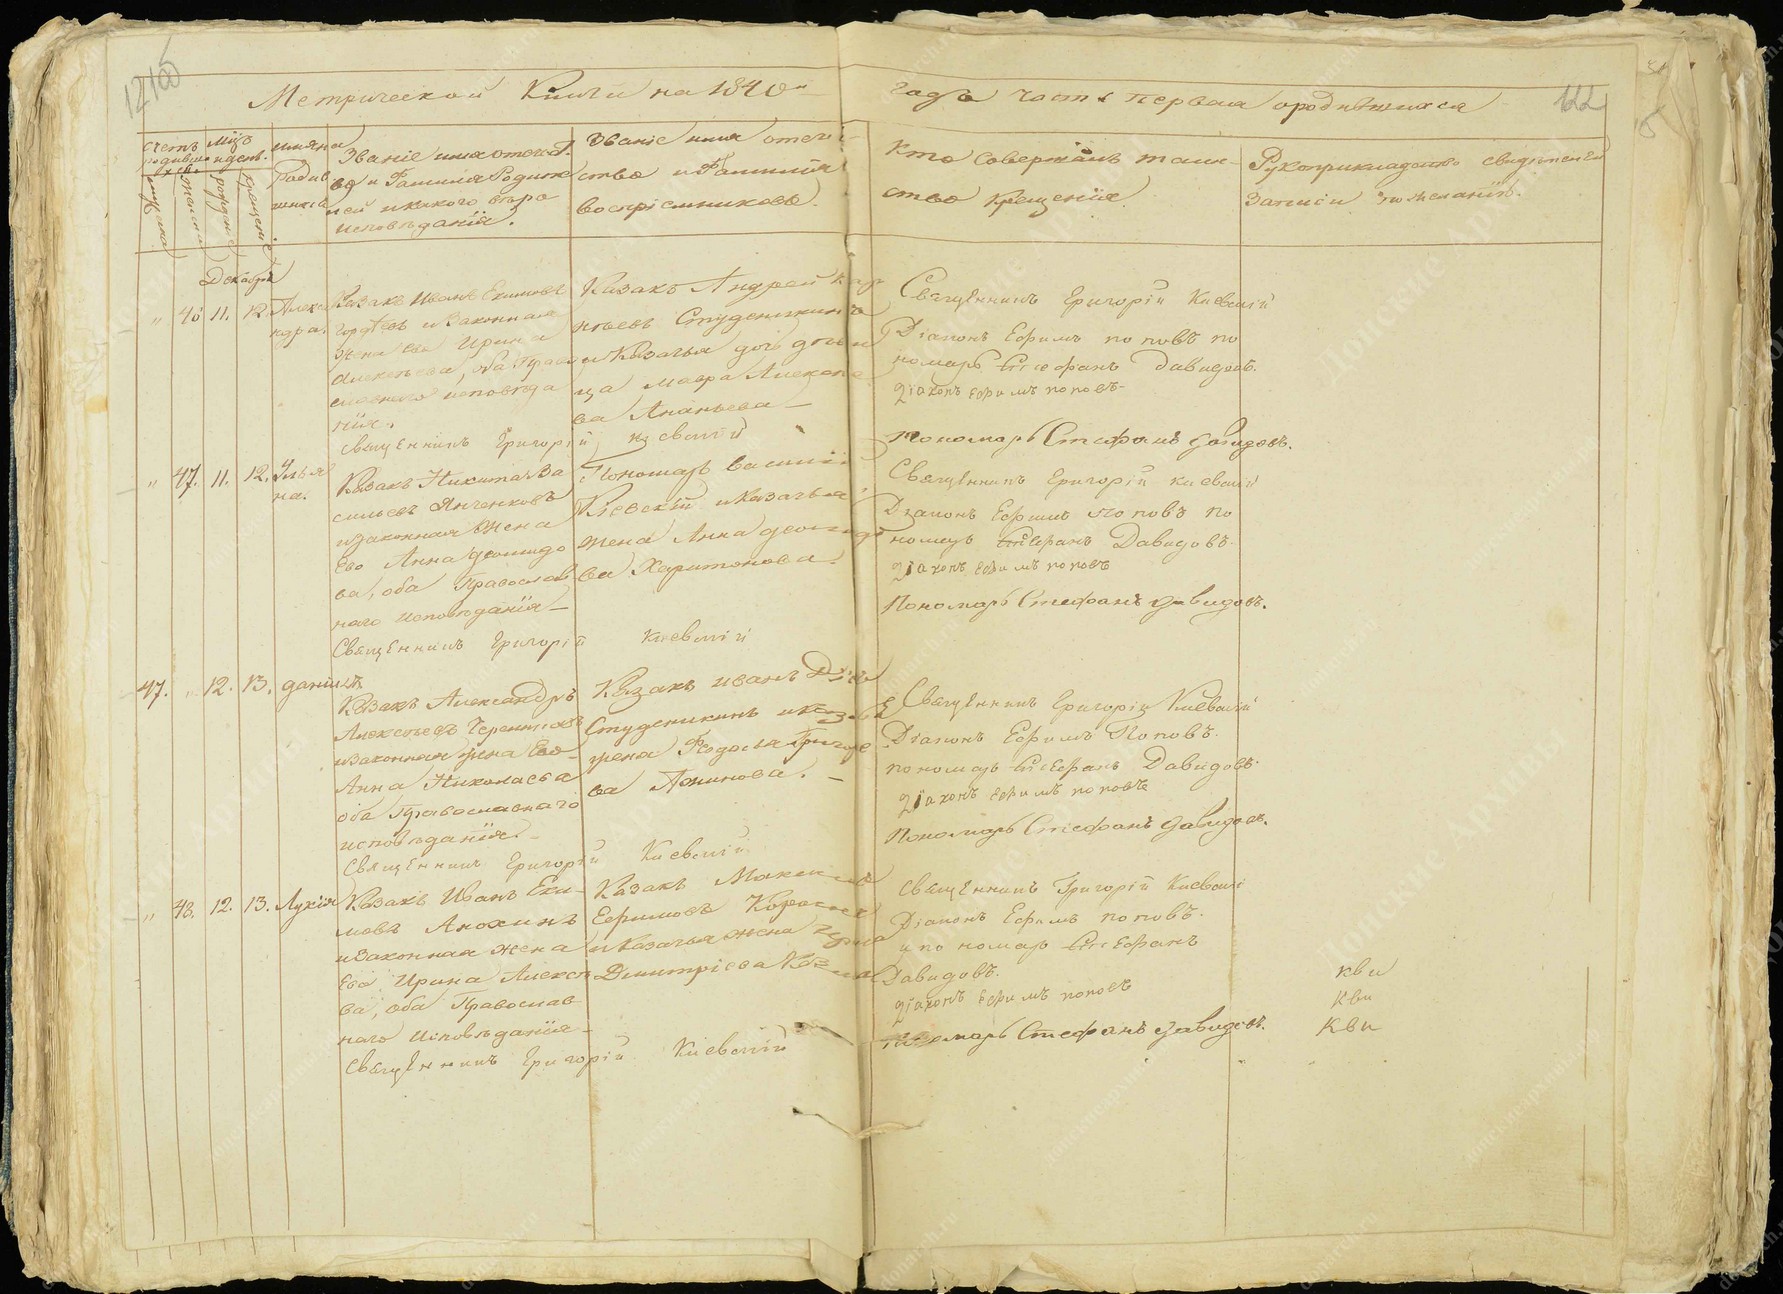 Метрической Книги на 1840й
годъ часть первая ородившихся
122
Счетъ родившихся
Мцъ и день.
имяна Родившихся
мужеска
женска
рожденiе
крещенiе
Званiе имя отечест.
во и Фамилiя Родите
лей и какого веро
исповѣданiя.
Званiе имя отече-
ство и Фамилiя
воспрiемниковъ.
Кто совершалъ таин-
ство крещенiя.
Рукоприкладство свидѣтелей
Записи по желанiю.
Декабрь
" 46 11. 12. Алекса
ндра.
Казакъ Иванъ Екимовъ
Гордѣевъ и Законная
жена Его Ирина
Алексѣева, оба Право
славнаго исповѣда
нiя.
Казакъ Андрей
Студеникинъ
и Казачья дочь девы
ца Мавра Алексѣе
ва Ананьева
Священникъ Григорiй Кiевскiй
Священникъ Григорiй Кiевскiй
Дiаконъ Ефимъ поповъ по
номарь Стефанъ Давидовъ.
дiаконъ Ефимъ поповъ
Пономарь Стефанъ Давидовъ.
" 47. 11. 12. Улья
на.
Казакъ Никита Ва
сильевъ Янченковъ
и законная Жена
Его Анна Деомидо
ва, оба Православ
наго исповѣданiя
Пономарь Василiй
Кiевскiй и Казачья
жена Анна
ва Харитонова.
Священникъ Григорiй Кiевскiй
Священникъ Григорiй Кiевскiй
Дiаконъ Ефимъ Поповъ по
номарь Стефанъ Давидовъ.
дiаконъ Ефимъ поповъ
Пономарь Стефанъ Давидовъ.
47. " 12. 13. данiилъ
Казакъ Александръ
Алексѣевъ
и законная жена Его
Анна Николаева
оба Православнаго
исповѣданiя.
Казакъ Иванъ
Студеникинъ и Казачья
жена Федосья Григорье
ва
Священникъ Григорiй Кiевскiй
Священникъ Григорiй Кiевскiй
Дiаконъ Ефимъ Поповъ.
пономарь Стефанъ Давидовъ.
дiаконъ Ефимъ поповъ
Пономарь Стефанъ Давидовъ.
" 48. 12. 13. Лукiя
Казакъ Иванъ Еки-
мовъ Анохинъ
и законная жена
Его Ирина Алексѣе
ва, оба Православ
наго Исповѣданiя
Казакъ Максимъ
Ефимовъ
и Казачья жена
Дмитрiева
Священникъ Григорiй Кiевскiй
Священникъ Григорiй Кiевскiй
Дiаконъ Ефимъ поповъ.
и пономарь Стефанъ
Давидовъ.
дiаконъ Ефимъ поповъ
Пономарь Стефанъ Давидовъ.
кви
Кви
Кви